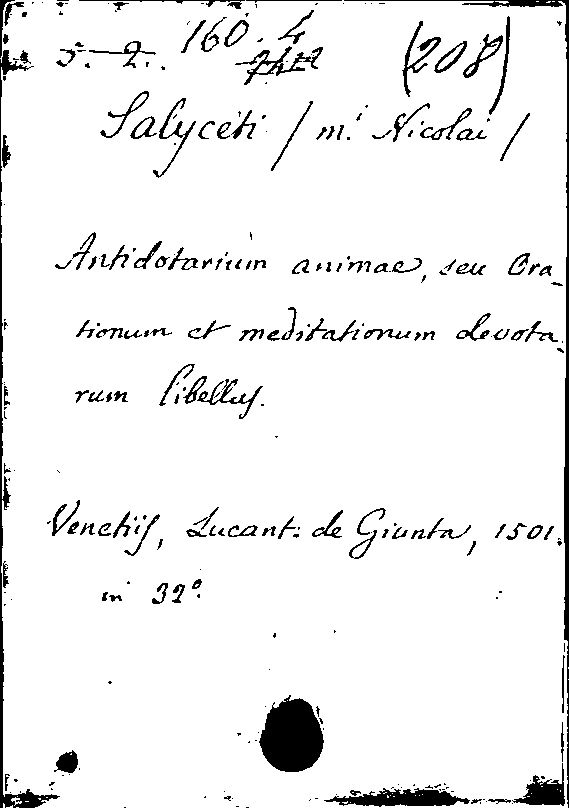 5. 2. 160. 4 (208)
Salyceti / m.i Nicolai /
Antidotarium animae, seu Ora-
tionum et meditationum devota-
rum libellus.
Venetiis, Lucant: de Giunta, 1501.
in 32º.